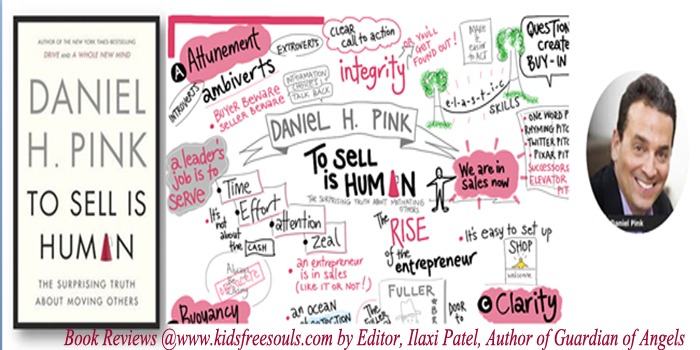 AUTHOR OF THE NEW YORK TIMES BESTSELLING
DRIVE AND A WHOLE NEW MIND
DANIEL
H. PINK
TO SELL IS
HUMAN
THE SURPRISING TRUTH
ABOUT MOVING OTHERS
A Attunement
INTROVERTS
ambiverts
EXTROVERTS
• BUYER BEWARE
SELLER BEWARE
INFORMATION
TALK BACK
CLEAR
call to action
integrity
OR YOU'LL
GET
FOUND OUT!
MAKE
it
easier
to ACT
QUESTION
create
BUY-IN
e-l-a-s-t-i-c
SKILLS
• ONE WORD P
• RHYMING PITC
• TWITTER PITC
• PIXAR PIT
SUCCESSORS
ELEVATOR
PIT
DANIEL H. PINK
TO SELL
IS HUMAN
THE SURPRISING TRUTH ABOUT MOTIVATING
OTHERS
We are in
sales now
a leader's
job is to
SERVE
• Time
• Effort
• attention
• Zeal
• It's
not
about
the CASH
• an entrepreneur
is in sales
(LIKE IT OR NOT!)
The
RISE
of the
entrepreneur
• It's easy to set up
SHOP
welcome
Buoyancy
an OCEAN
of
The
FULLER
DOOR
to
C Clarity
Daniel Pink
Book Reviews @www.kidsfreesouls.com by Editor, Ilaxi Patel, Author of Guardian of Angels